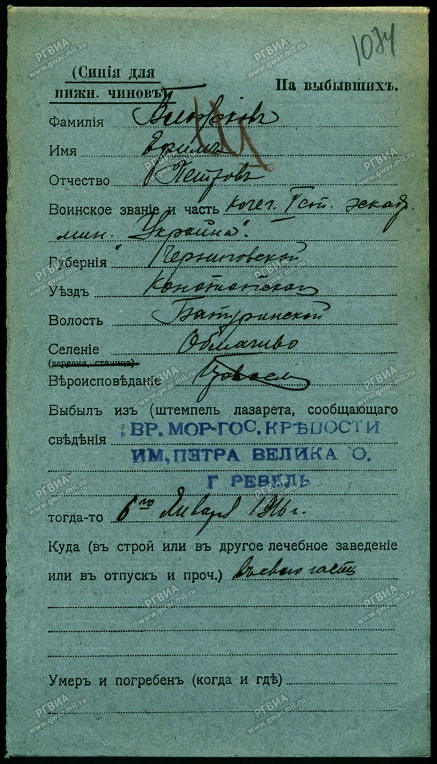 1074
(Синія для
нижн. чиновъ)
На выбывшихъ.
Фамилія
Имя Ефимъ
Отчество Петровъ
Воинское званіе и часть кочег. I ст. эскад.
мин. "Украйна".
Губернія Черниговской
Уѣздъ Конотопскаго
Волость Батуринской
Селеніе Обмачево
(деревня, станица)
Вѣроисповѣданіе Правосл
Выбылъ из (штемпель лазарета, сообщающаго
свѣдѣнія ВР. МОР-ГОС. КРѢПОСТИ
ИМ. ПЭТРА ВЕЛИКА О.
Г РЕВЕЛЬ
тогда-то 6го Января 1916 г.
Куда (въ строй или въ другое лечебное заведеніе
или въ отпускъ и проч.) въ свою часть
Умеръ и погребенъ (когда и гдѣ)
РГВИА
www.gwar.mil.ru